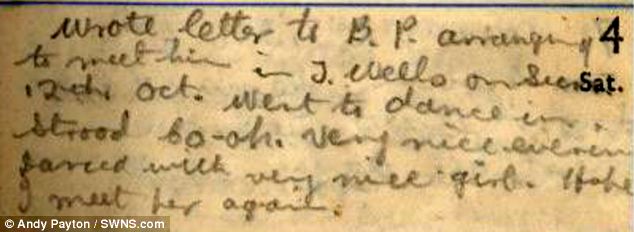 Wrote letter to B. P. arranging 4
to meet him in T. Wells on Sun Sat.
12th Oct. Went to dance in
Strood Co-op. Very nice evening
Danced with very nice girl. Hope
I meet her again.
© Andy Payton / SWNS.com